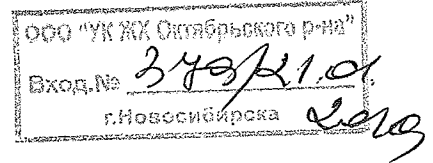 ООО "УК ЖХ Октябрьского р-на"
Вход.№ 379/21.01.
г.Новосибирска 2019